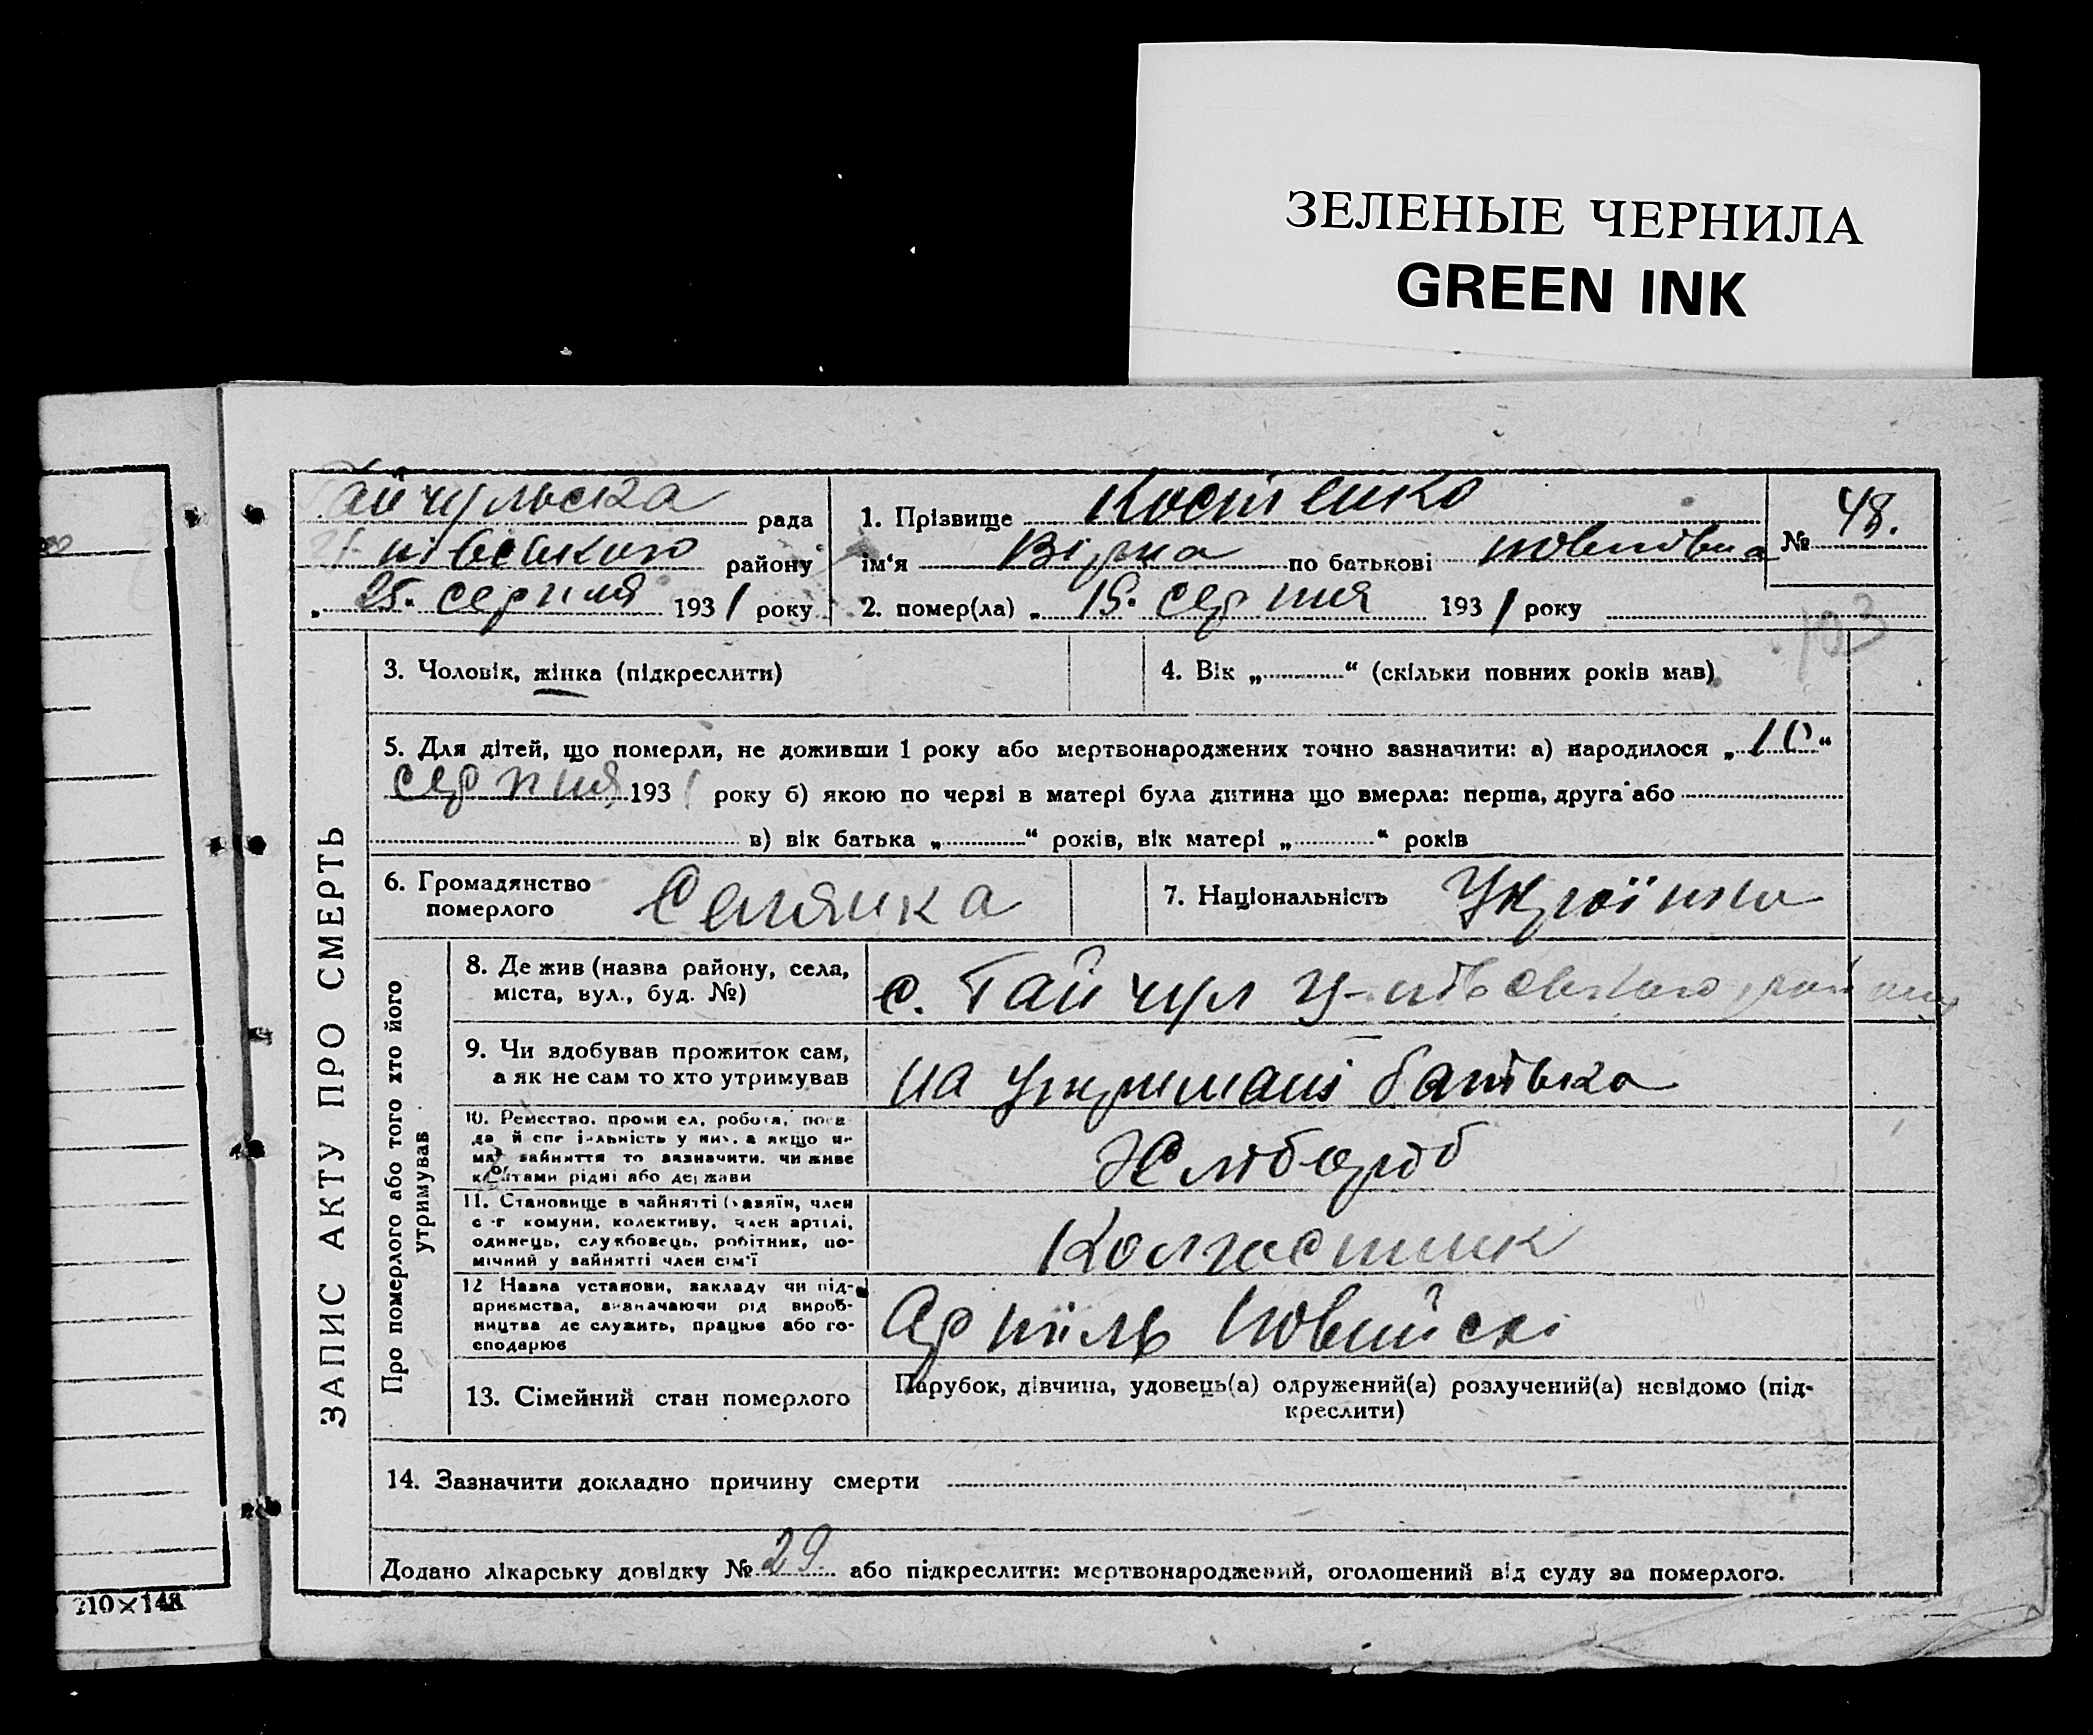 ЗЕЛЕНЫЕ ЧЕРНИЛА
GREEN INK
Гайчульска рада
району
25. серпня 1931 року
1. Прізвище Костенко
ім‘я Віра по батькові
2. помер(ла) „ 15. серпня 1931 року
№ 48.
103
ЗАПИС АКТУ ПРО СМЕРТЬ
3. Чоловік, жінка (підкреслити)
4. Вік „ “ (скільки повних років мав)
5. Для дітей, що померли, не доживши 1 року або мертвонароджених точно зазначити: а) народилося „ 10 “
серпня 1931 року б) якою по черзі в матері була дитина що вмерла: перша, друга або
в) вік батька „ “ років, вік матері „ “ років
6. Громадянство
померлого Селянка
7. Національність Українка
Про померлого або того хто його
утримував
8. Де жив (назва району, села,
міста, вул., буд. №)
с. Гайчул району
9. Чи здобував прожиток сам,
а як не сам то хто утримував
на утримані батька
10. Ремество, промисел, робота, поса-
да й спеціяльність у них, а якщо не
має зайняття то зазначити, чи живе
коштами рідні або держави
Хлібороб
11. Становище в зайнятті (хазяїн, член
с-г комуни, колективу, член артілі,
одинець, службовець, робітник, по-
мічний у зайнятті член сім‘ї
Колгоспник
12 Назва установи, закладу чи під-
приємства, визначаючи рід вироб-
ництва де служить, працює або го-
сподарює
Артіль
13. Сімейний стан померлого
Парубок, дівчина, удовець(а) одружений(а) розлучений(а) невідомо (під-
креслити)
14. Зазначити докладно причину смерти
Додано лікарську довідку № 29 або підкреслити: мертвонароджений, оголошений від суду за померлого.
210×148